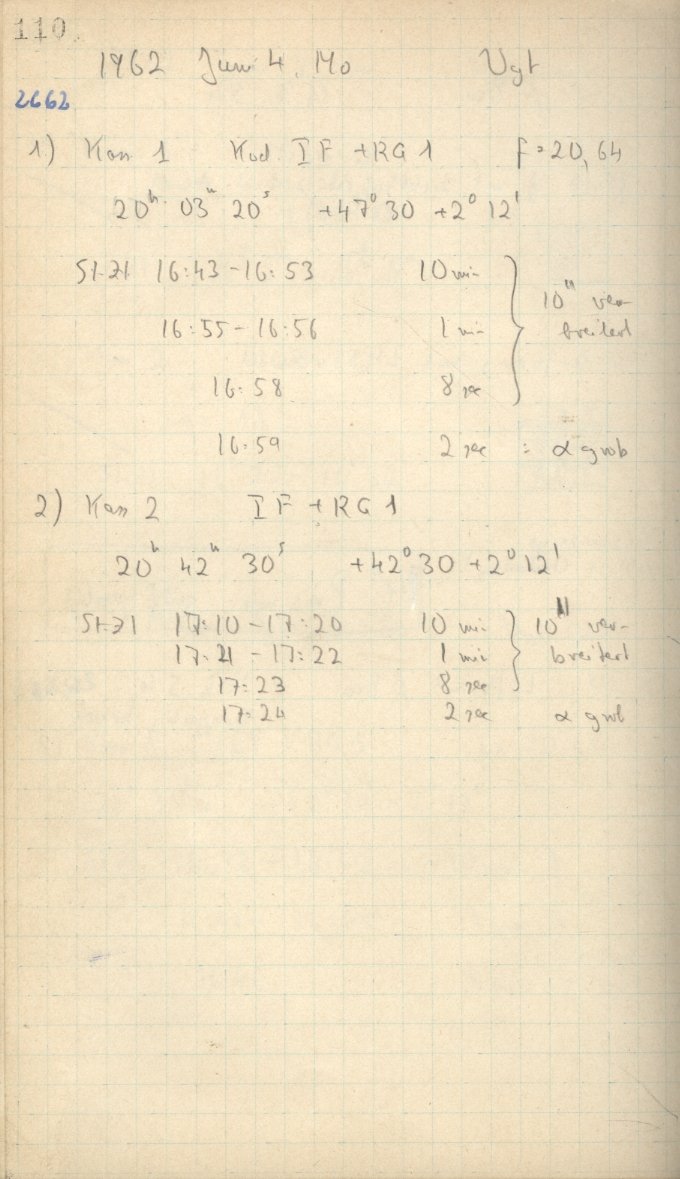 110
1962 Juni 4. Mo Vgt
2662
1) Kass 1 Kod. I F + RG 1 f = 20,64
20h 03m 20s +47° 30 +2° 12'
St. Zt 16:43 - 16:53 10 min
16:55 - 16:56 1 min
10" ver-
breitert
16:58 8 sec
16:59 2 sec = α grob
2) Kass 2 I F + RG 1
20h 42m 30s +42° 30 +2° 12'
St. Zt 17:10 - 17:20 10 min 10" ver-
17:21 - 17:22 1 min breitert
17:23 8 sec
17:24 2 sec α grob